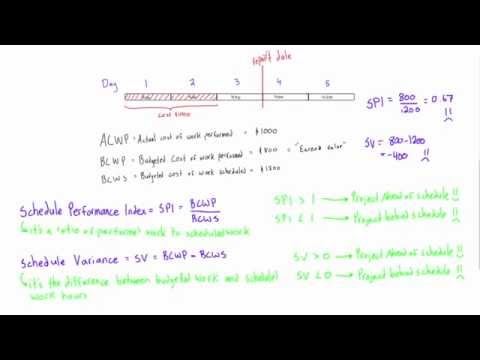 report date
Day 1 2 3 4 5
400 400 400
cost $1000
ACWP = Actual cost of work performed = $1000
BCWP = Budgeted cost of work performed = $800 = "Earned value"
BCWS = Budgeted cost of work scheduled =
SPI = 800 / 1200 = 0.67
SV = 800 - 1200
= -400
Schedule Performance Index = SPI = BCWP / BCWS
it's a ratio of performed work to scheduled work
SPI > 1 → Project Ahead of schedule
SPI < 1 → Project behind schedule
Schedule Variance = SV = BCWP - BCWS
it's the difference between budgeted work and scheduled
work hours
SV > 0 → Project Ahead of schedule
SV < 0 → Project behind schedule